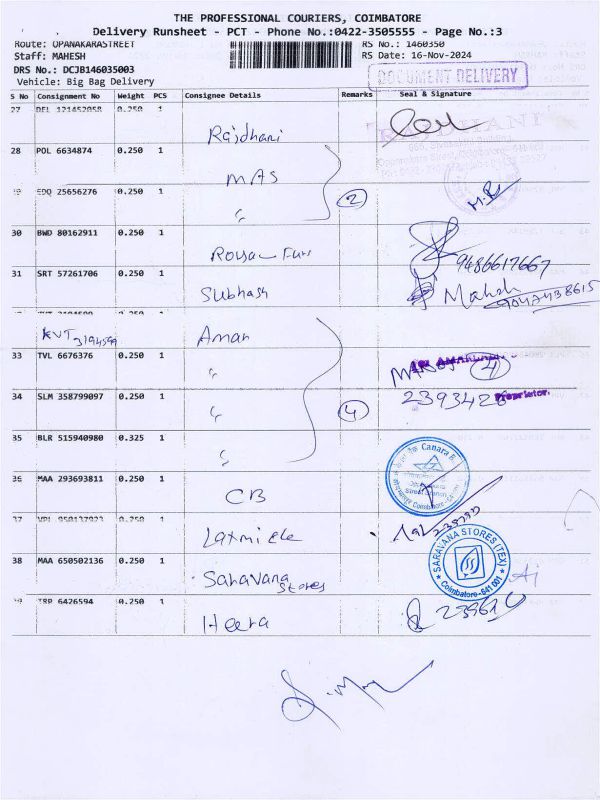 THE PROFESSIONAL COURIERS, COIMBATORE
Delivery Runsheet - PCT - Phone No.:0422-3505555 - Page No.:3
Route: OPANAKARASTREET RS No.: 1460350
Staff: MAHESH RS Date: 16-Nov-2024
DRS No.: DCJB146035003
Vehicle: Big Bag Delivery
DOCUMENT DELIVERY
S No Consignment No Weight PCS Consignee Details Remarks Seal & Signature
27 DEL 121452058 0.250 1
Rajdhani
28 POL 6634874 0.250 1
MAS
2
EDQ 25656276 0.250 1
"
30 BWD 80162911 0.250 1
9486617667
31 SRT 57261706 0.250 1
Subhash Mahesh
9047438615
KVT 3194599 Aman
33 TVL 6676376 0.250 1
" 4
34 SLM 358799097 0.250 1
" 4 Proprietor.
35 BLR 515940980 0.325 1
"
Canara B
Street Branch
Coimbatore-641
36 MAA 293693811 0.250 1
CB
37 VPI 0.250 1
38 MAA 650502136 0.250 1
Saravana
Stores
SARAVANA STORES (TEX)
Coimbatore-641 001
TRP 6426594 0.250 1
Heera